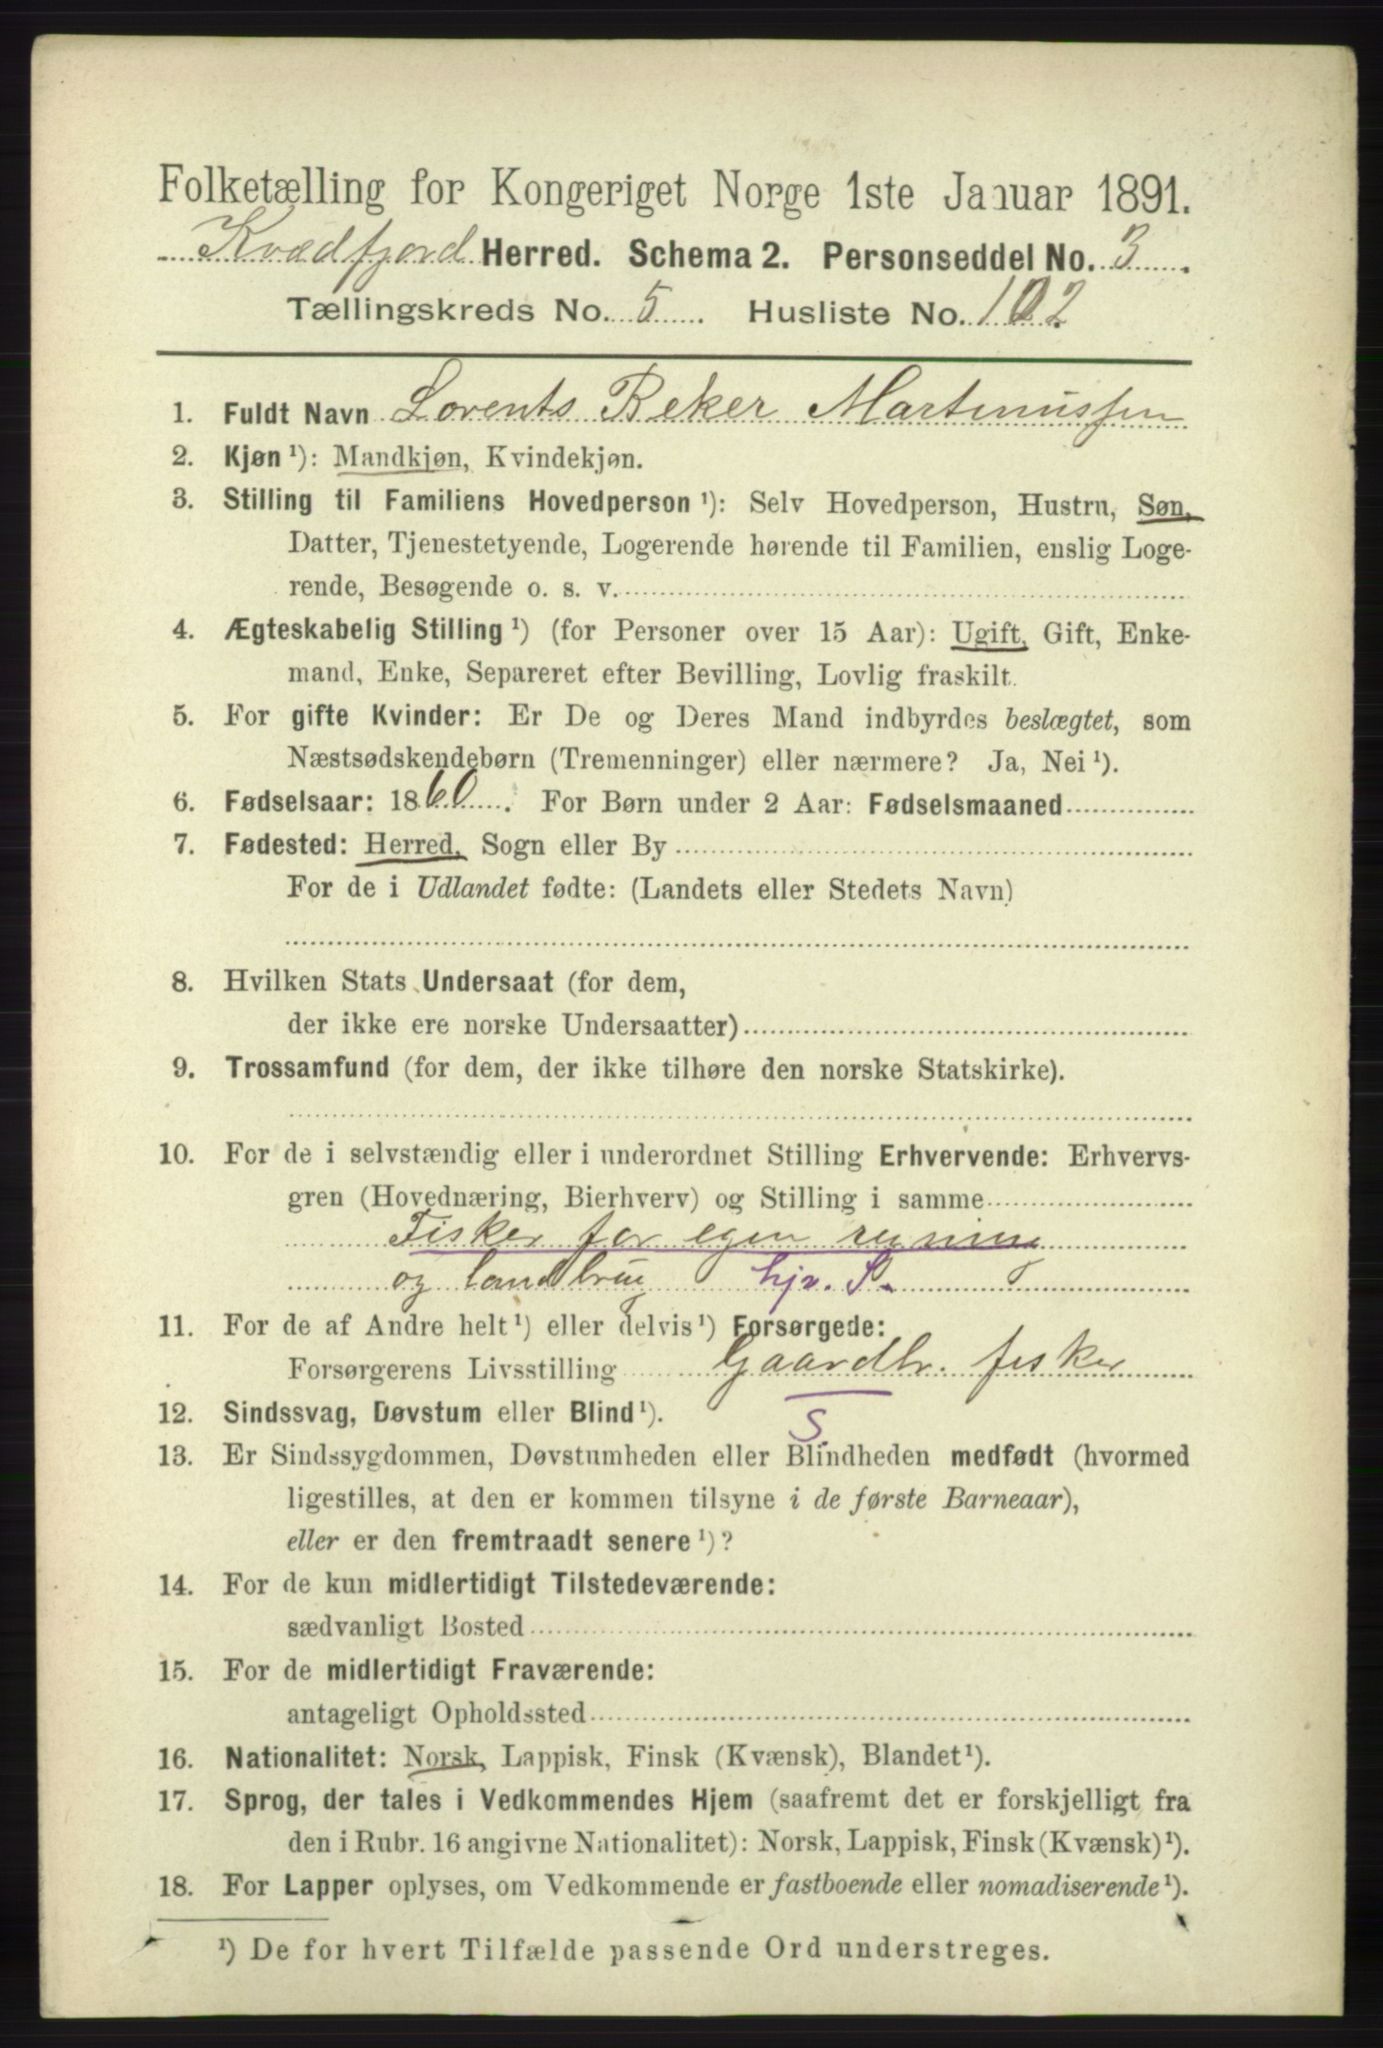 Folketælling for Kongeriget Norge 1ste Januar 1891.
Kvædfjord Herred. Schema 2. Personseddel No. 3.
Tællingskreds No. 5 Husliste No. 102
1. Fuldt Navn Lorents Beker Martinussen
2. Kjøn ¹): Mandkjøn, Kvindekjøn.
3. Stilling til Familiens Hovedperson ¹): Selv Hovedperson, Hustru, Søn,
Datter, Tjenestetyende, Logerende hørende til Familien, enslig Loge-
rende, Besøgende o. s. v.
4. Ægteskabelig Stilling ¹) (for Personer over 15 Aar): Ugift, Gift, Enke-
mand, Enke, Separeret efter Bevilling, Lovlig fraskilt.
5. For gifte Kvinder: Er De og Deres Mand indbyrdes beslægtet, som
Næstsødskendebørn (Tremenninger) eller nærmere? Ja, Nei ¹).
6. Fødselsaar: 1860. For Børn under 2 Aar: Fødselsmaaned
7. Fødested: Herred, Sogn eller By
For de i Udlandet fødte: (Landets eller Stedets Navn)
8. Hvilken Stats Undersaat (for dem,
der ikke ere norske Undersaatter)
9. Trossamfund (for dem, der ikke tilhøre den norske Statskirke).
10. For de i selvstændig eller i underordnet Stilling Erhvervende: Erhvervs-
gren (Hovednæring, Bierhverv) og Stilling i samme
Fisker for egen
og landbrug hjv. S.
11. For de af Andre helt ¹) eller delvis ¹) Forsørgede:
Forsørgerens Livsstilling Gaardbr. fisker
12. Sindssvag, Døvstum eller Blind ¹). S.
13. Er Sindssygdommen, Døvstumheden eller Blindheden medfødt (hvormed
ligestilles, at den er kommen tilsyne i de første Barneaar),
eller er den fremtraadt senere ¹)?
14. For de kun midlertidigt Tilstedeværende:
sædvanligt Bosted
15. For de midlertidigt Fraværende:
antageligt Opholdssted
16. Nationalitet: Norsk, Lappisk, Finsk (Kvænsk), Blandet ¹).
17. Sprog, der tales i Vedkommendes Hjem (saafremt det er forskjelligt fra
den i Rubr. 16 angivne Nationalitet): Norsk, Lappisk, Finsk (Kvænsk) ¹).
18. For Lapper oplyses, om Vedkommende er fastboende eller nomadiserende ¹).
¹) De for hvert Tilfælde passende Ord understreges.